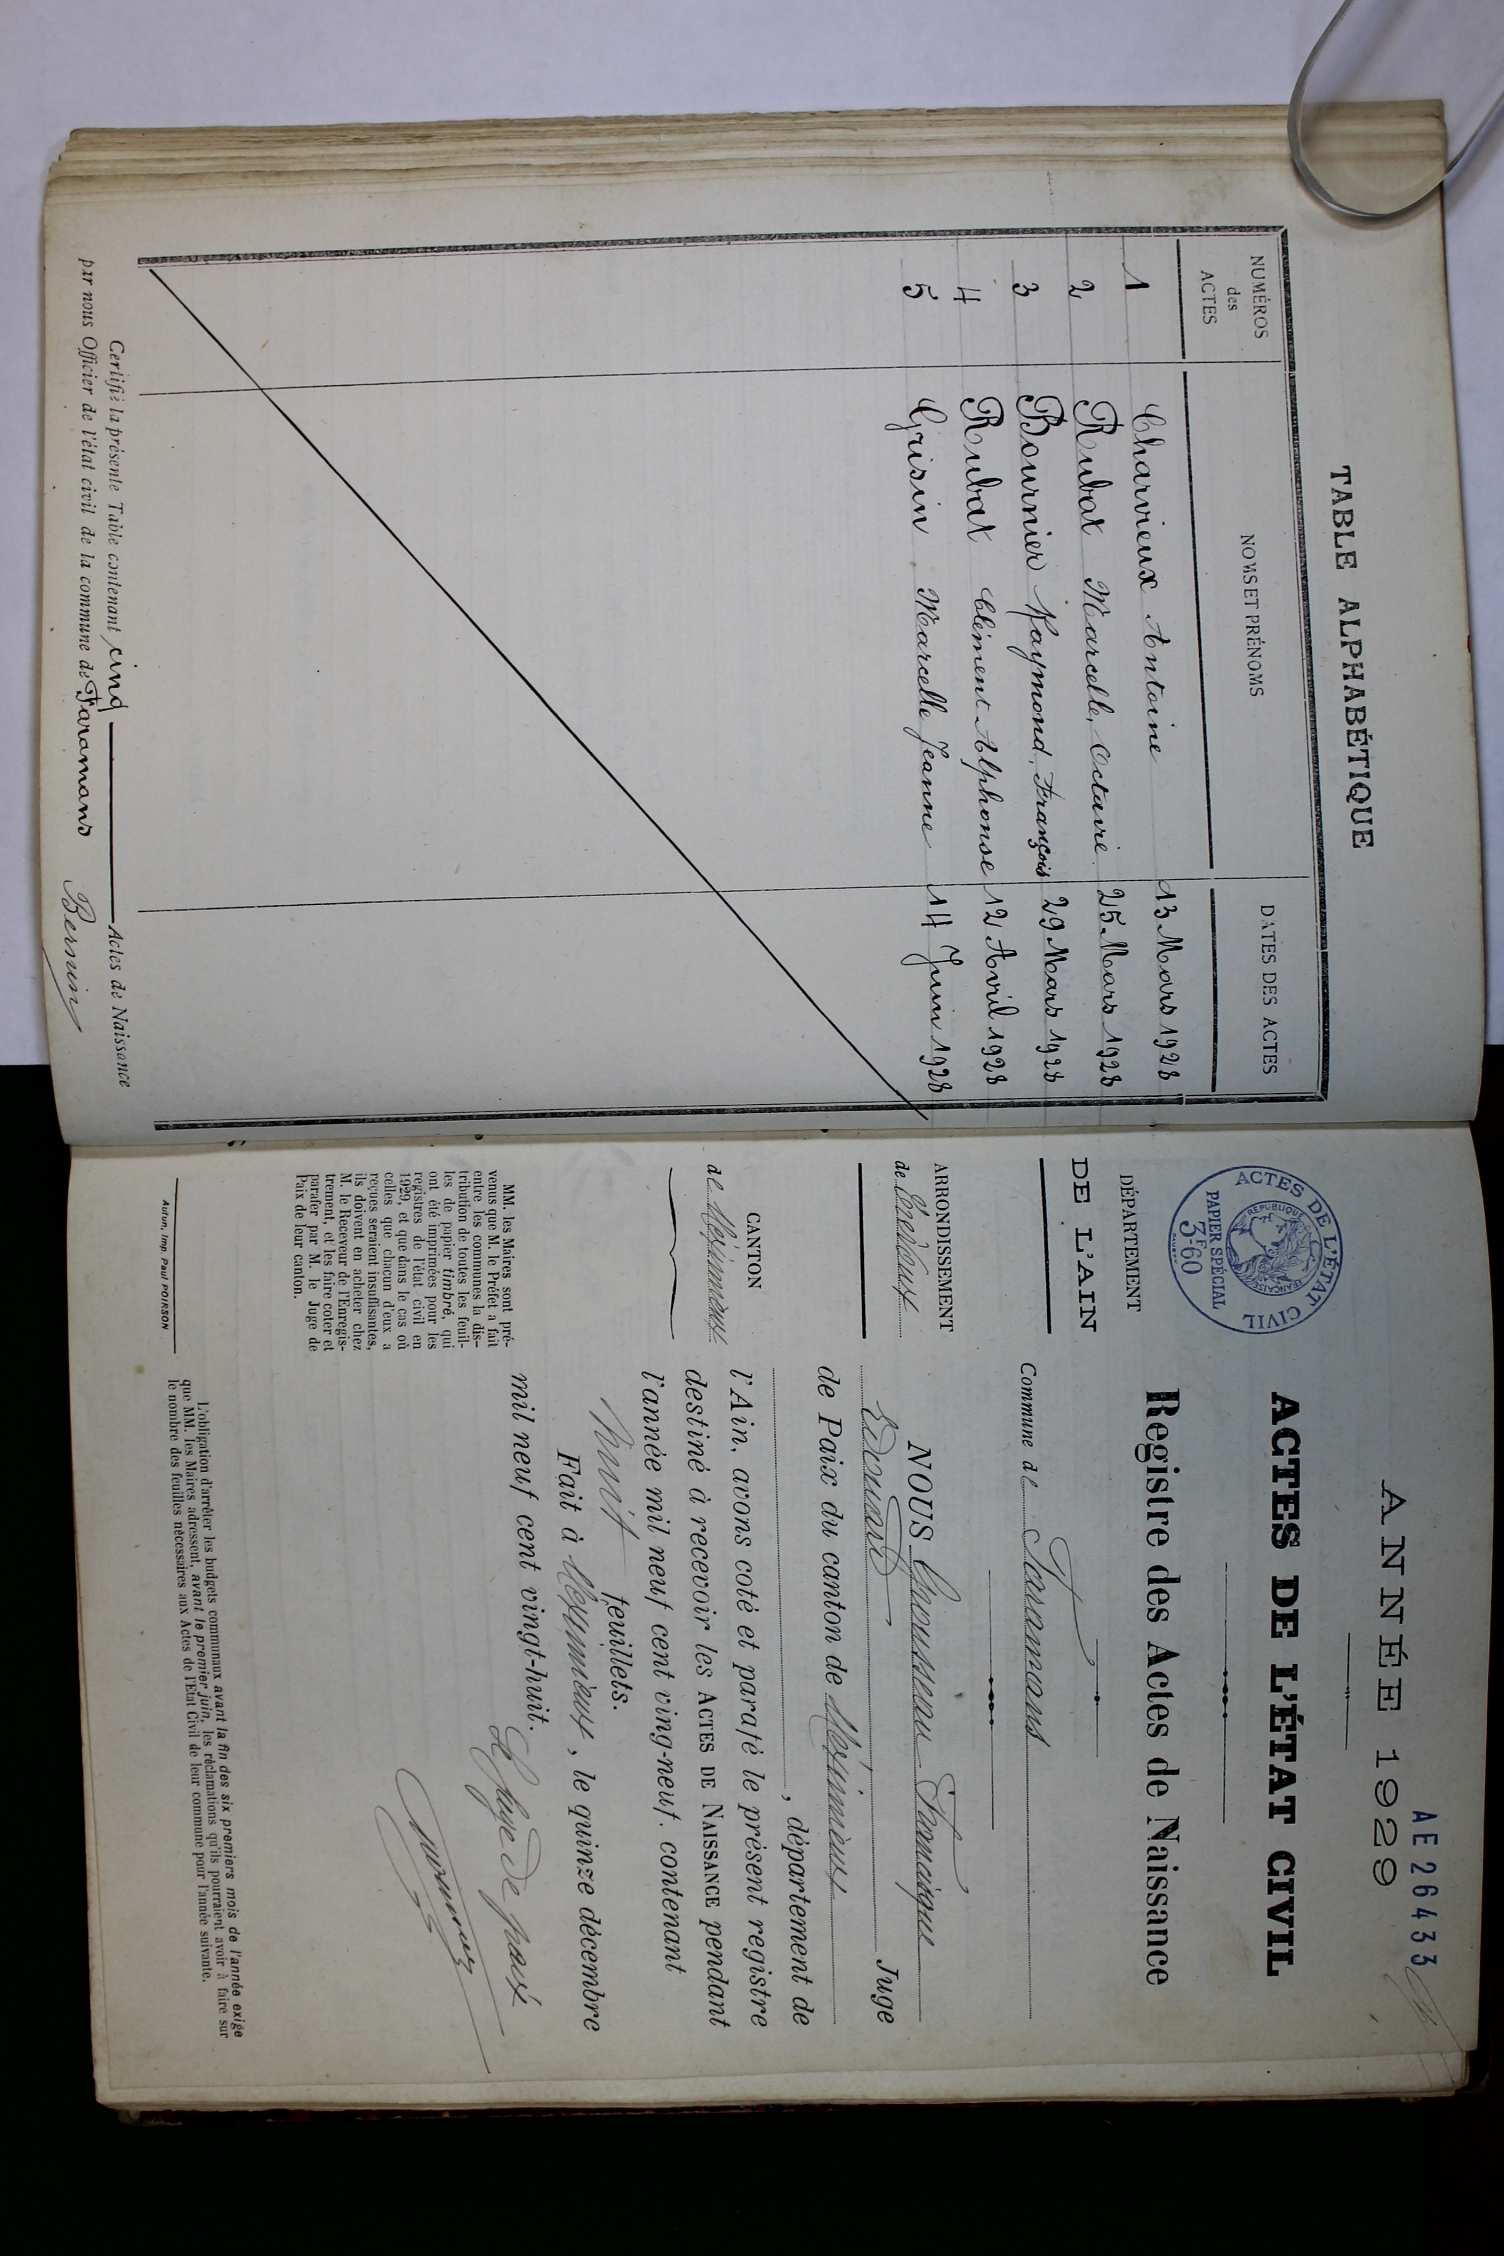 TABLE ALPHABÉTIQUE
NUMÉROS des ACTES
NOMS ET PRÉNOMS
DATES DES ACTES
1 Charvieux Antoine 13 Mars 1928
2 Rubat Marcelle, Octavie 25 Mars 1928
3 Bournier Raymond, François 29 Mars 1928
4 Rubat Clément Alphonse 12 Avril 1928
5 Grisin Marcelle Jeanne 14 Juin 1928
Certifié la présente Table contenant cinq Actes de Naissance
par nous Officier de l'état civil de la commune de Faramans
Bernin
AE26433
ANNÉE 1929
ACTES DE L'ÉTAT CIVIL
RÉPUBLIQUE FRANÇAISE
PAPIER SPÉCIAL
3F60
ACTES DE L'ÉTAT CIVIL
Registre des Actes de Naissance
DÉPARTEMENT
DE L'AIN
Commune de Faramans
ARRONDISSEMENT
de Trévoux
CANTON
de Meximieux
MM. les Maires sont pré-
venus que M. le Préfet a fait
entre les communes la dis-
tribution de toutes les feuil-
les de papier timbré, qui
ont été imprimées pour les
registres de l'état civil en
1929, et que dans le cas où
celles que chacun d'eux a
reçues seraient insuffisantes,
ils doivent en acheter chez
M. le Receveur de l'Enregis-
trement, et les faire coter et
parafer par M. le Juge de
Paix de leur canton.
Autun, Imp. Paul POIRSON
NOUS Francisque Juge
Edouard
de Paix du canton de Meximieux
, département de
l'Ain, avons coté et parafé le présent registre
destiné à recevoir les ACTES DE NAISSANCE pendant
l'année mil neuf cent ving-neuf. contenant
huit feuillets.
Fait à Meximieux, le quinze décembre
mil neuf cent vingt-huit.
Le Juge de paix
L'obligation d'arrêter les budgets communaux avant la fin des six premiers mois de l'année exige
que MM. les Maires adressent, avant le premier juin, les réclamations qu'ils pourraient avoir à faire sur
le nombre des feuilles nécessaires aux Actes de l'Etat Civil de leur commune pour l'année suivante.